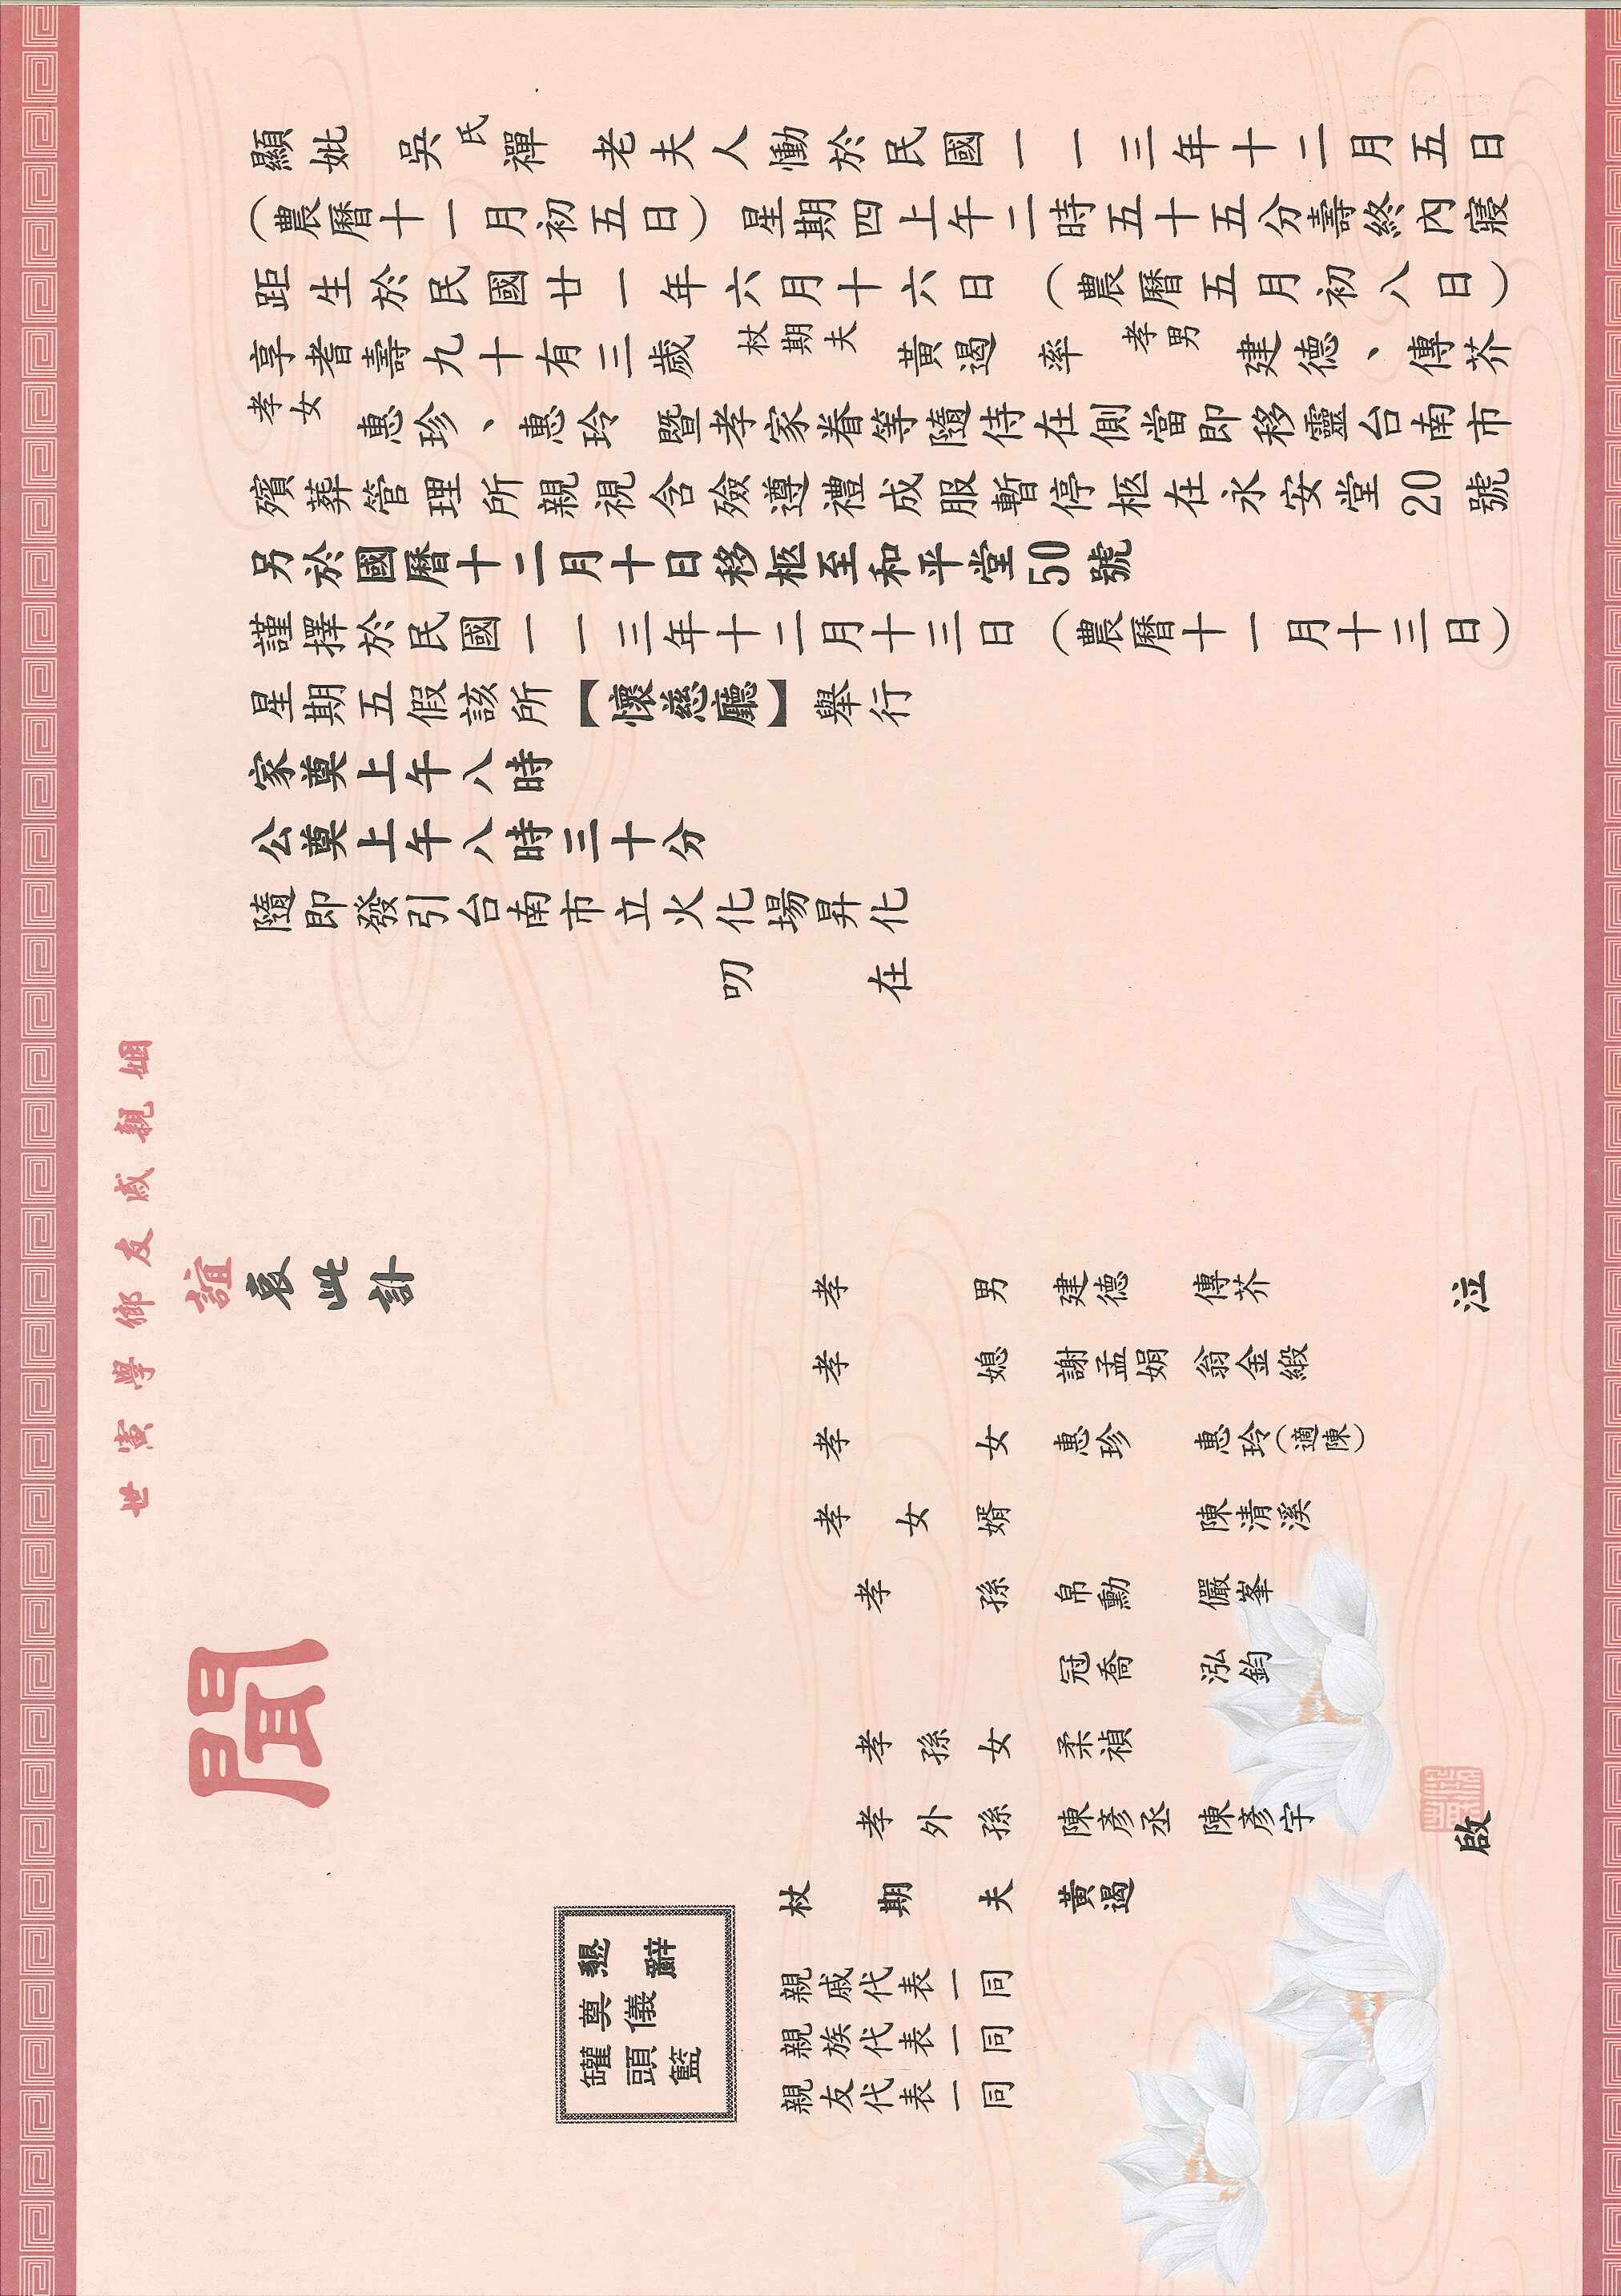 顯妣吳氏禪老夫人慟於民國一一三年十二月五日
（農曆十一月初五日）星期四上午二時五十五分壽終內寢
距生於民國廿一年六月十六日（農曆五月初八日）
享耆壽九十有三歲 杖期夫 黃遏 率 孝男 建德、傳芥
孝女 惠珍、惠玲 暨孝家眷等隨侍在側當即移靈台南市
殯葬管理所親視含殮遵禮成服暫停柩在永安堂20號
另於國曆十二月十日移柩至和平堂50號
謹擇於民國一一三年十二月十三日（農曆十一月十三日）
星期五假該所【懷慈廳】舉行
家奠上午八時
公奠上午八時三十分
隨即發引台南市立火化場昇化
叨 在
姻親戚友鄉學寅世
誼
哀此訃
聞
孝男 建德 傳芥
孝媳 謝孟娟 翁金緞
孝女 惠珍 惠玲（適陳）
孝女婿 陳清溪
孝孫 帛勳 儼峯
冠喬 泓鈞
孝孫女 柔禎
孝外孫 陳彥丞 陳彥宇
杖期夫 黃遏
親戚代表一同
親族代表一同
親友代表一同
泣啟
懇辭
奠儀
罐頭籃